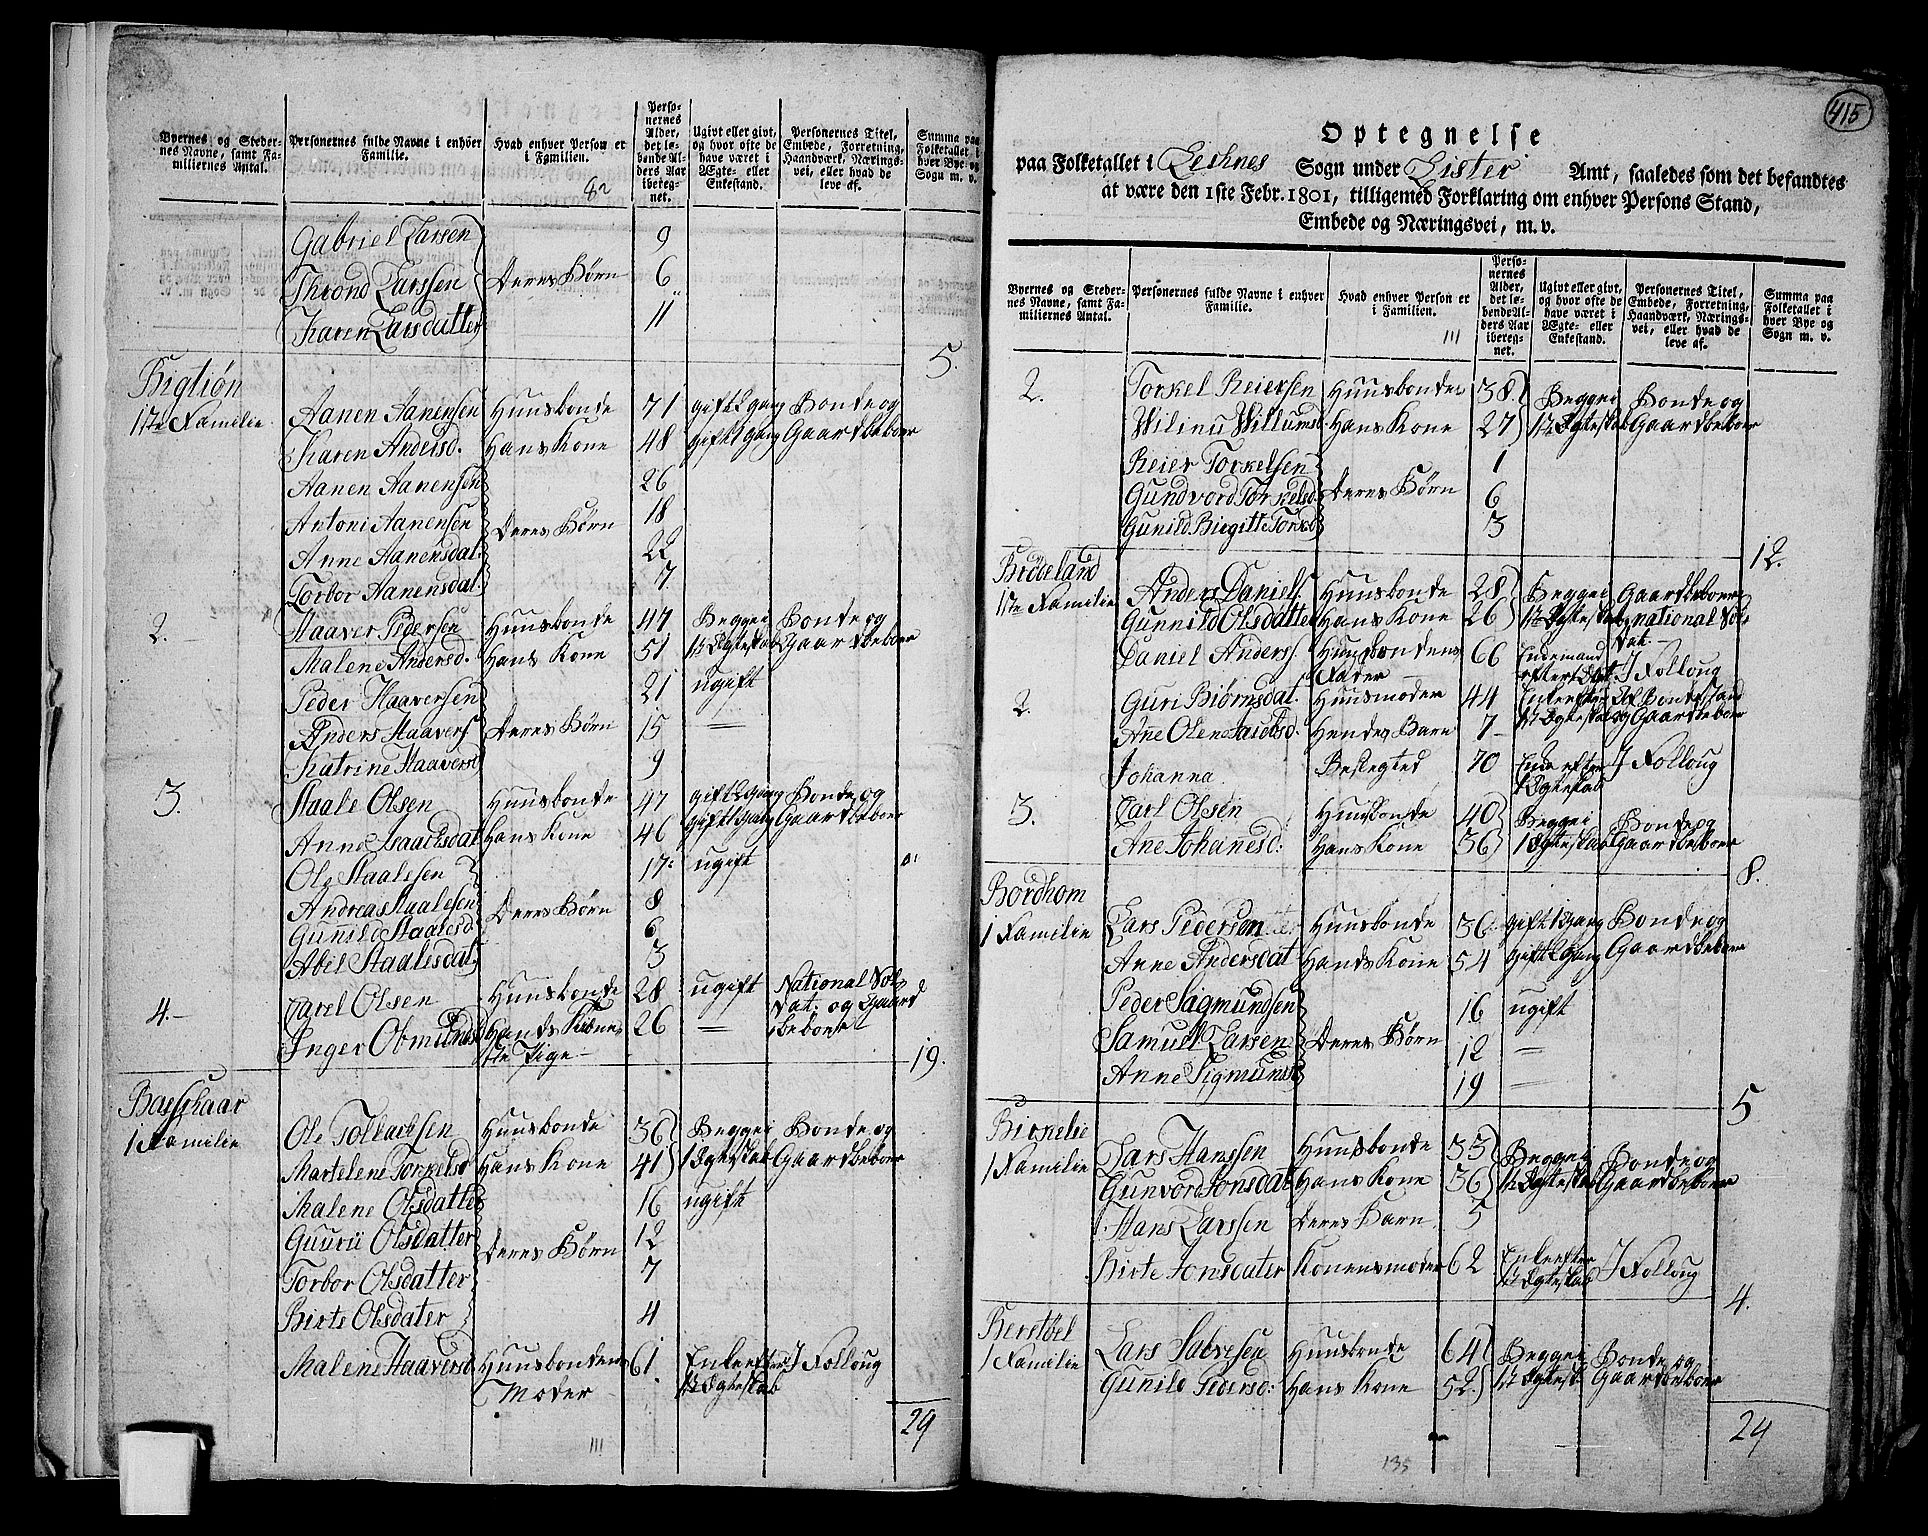 Byernes og Steder-
nes Navne, samt Fa-
miliernes Antal.
Personernes fulde Navne i enhver
Familie.
Hvad enhver Person er
i Familien.
Perso-
nernes
Alder,
det le-
bende Al-
ders Aar
iberegnet.
Ugivt eller givt,
og hvor ofte de
have været i
Ægte- eller
Enkestand.
Personernes Titel,
Embede, Forretning,
Haandværk, Nærings-
vei, eller hvad de
leve af.
Summa paa
Folketallet i
hver Bye og
Sogn m. v.
82
Gabriel Larsen 9
Thrond Larssen Deres Børn 6
Karen Larsdatter 11
5.
Bigtiøn
1ste Familie Aanen Aanensen Huusbonde 71 gift 2 gang Bonde og
Karen Andersd. Hans Kone 48 gift 1 gang Gaardbeboer
Aanen Aanensen 26
Antoni Aanensen Deres Børn 18
Anne Aanensdat. 22
Torbor Aanensdat. 7
2. Haaver Pedersen Huusbonde 47 Begge i Bonde og
Malene Andersd. Hans Kone 51 1ste Ægteskab Gaardbeboer
Peder Haaversen 21 ugift
Anders Haavers Deres Børn 15 =
Katrine Haaversd 9
3. Staale Olsen Huusbonde 47 gift 2 gang Bonde og
Anne Isaachsdat Hans Kone 46 gift 1 gang Gaardbeboer
Ole Staalesen 17 ugift
Andreas Staalesen Deres Børn 8
Gunnild Staalesd 6
Abil Staalesdat. 3
4. Carel Olsen Huusbonde 28 ugift National Sol-
dat og Gaard
Inger Obmundsd Hands Tiene- 26 = beboer
ste Pige
19.
1 Familie Ole Tollachsen Huusbonde 36 Begge i Bonde og
Martelene Torkelsd Hans Kone 41 1 Ægteskab Gaardbeboer
Malene Olsdatter 16 ugift
Guurii Olsdatter Deres Børn 12
Torbor Olsdatter 7
Birte Olsdater 4
Malene Haaversd Huusbondens 61 Enke efter I Folloug
Moder 1ste Ægteskab
29
111
415
Optegnelse
paa Folketallet i Qvinnes Sogn under Lister Amt, saaledes som det befandtes
at være den 1ste Febr. 1801, tilligemed Forklaring om enhver Persons Stand,
Embede og Næringsvei, m. v.
Byernes og Steder-
nes Navne, samt Fa-
miliernes Antal.
Personernes fulde Navne i enhver
Familie.
Hvad enhver Person er
i Familien.
Perso-
nernes
Alder,
det le-
bende Al-
ders Aar
ibereg-
net.
Ugivt eller givt,
og hvor ofte de
have været i
Ægte- eller
Enkestand.
Personernes Titel,
Embede, Forretning,
Haandværk, Nærings-
vei, eller hvad de
leve af.
Summa paa
Folketallet i
hver Bye og
Sogn m. v.
111
2. Torkel Reiersen Huusbonde 38 Begge i Bonde og
Willumsd. Hans Kone 27 1ste Ægteskab Gaardbeboer
Reier Torkelsen 1
Gundvord Torkelsd. Deres Børn 6
Gunild Birgitte Torkd 3
12.
Brödeland
1ste Familie Anders Daniels. Huusbonde 28 Begge i Gaardbeboer
Gunnild Olsdatter Hans Kone 26 1ste Ægteskab og national Sol-
dat
Daniel Anders. Huusbondens 66 Enkemand I Folloug
Fader efter
2. Guri Biörnsdat. Huusmoder 44 Enke efter Af Bondestand
Ane Olene Hendes Barn 7 1ste Ægteskab og Gaardbeboer
Johanna Beslegted 70 Enke efter I Folloug
1 Ægteskab
3. Carl Olsen Huusbonde 40 Begge i Bonde og
Ane Johanesd: Hans Kone 36 1 Ægteskab Gaardbeboer
8.
Bordhom
1 Familie Lars Pedersen Huusbonde 36 gift 1 gang Bonde og
Anne Andersdat Hands Kone 54 gift 2 gang Gaardbeboer
Peder Sigmundsen 16 ugift
Samuel Larsen Deres Børn 12 =
Anne Sigmunsd 19 =
5
Birkelie
1 Familie Lars Hanssen Huusbonde 33 Begge i Bonde og
Gunvord Jonsdat Hans Kone 36 1ste Ægteskab Gaardbeboer
Hans Larssen Deres Barn 5
Birte Jonsdater Konens moder 62 Enke efter I Folloug
1ste Ægteskab
4.
Berstøel
1 Familie Lars Salvesen Huusbonde 64 Begge i Bonde og
Gunild Pedersd: Hans Kone 52 1ste Ægteskab Gaardbeboer
24
135